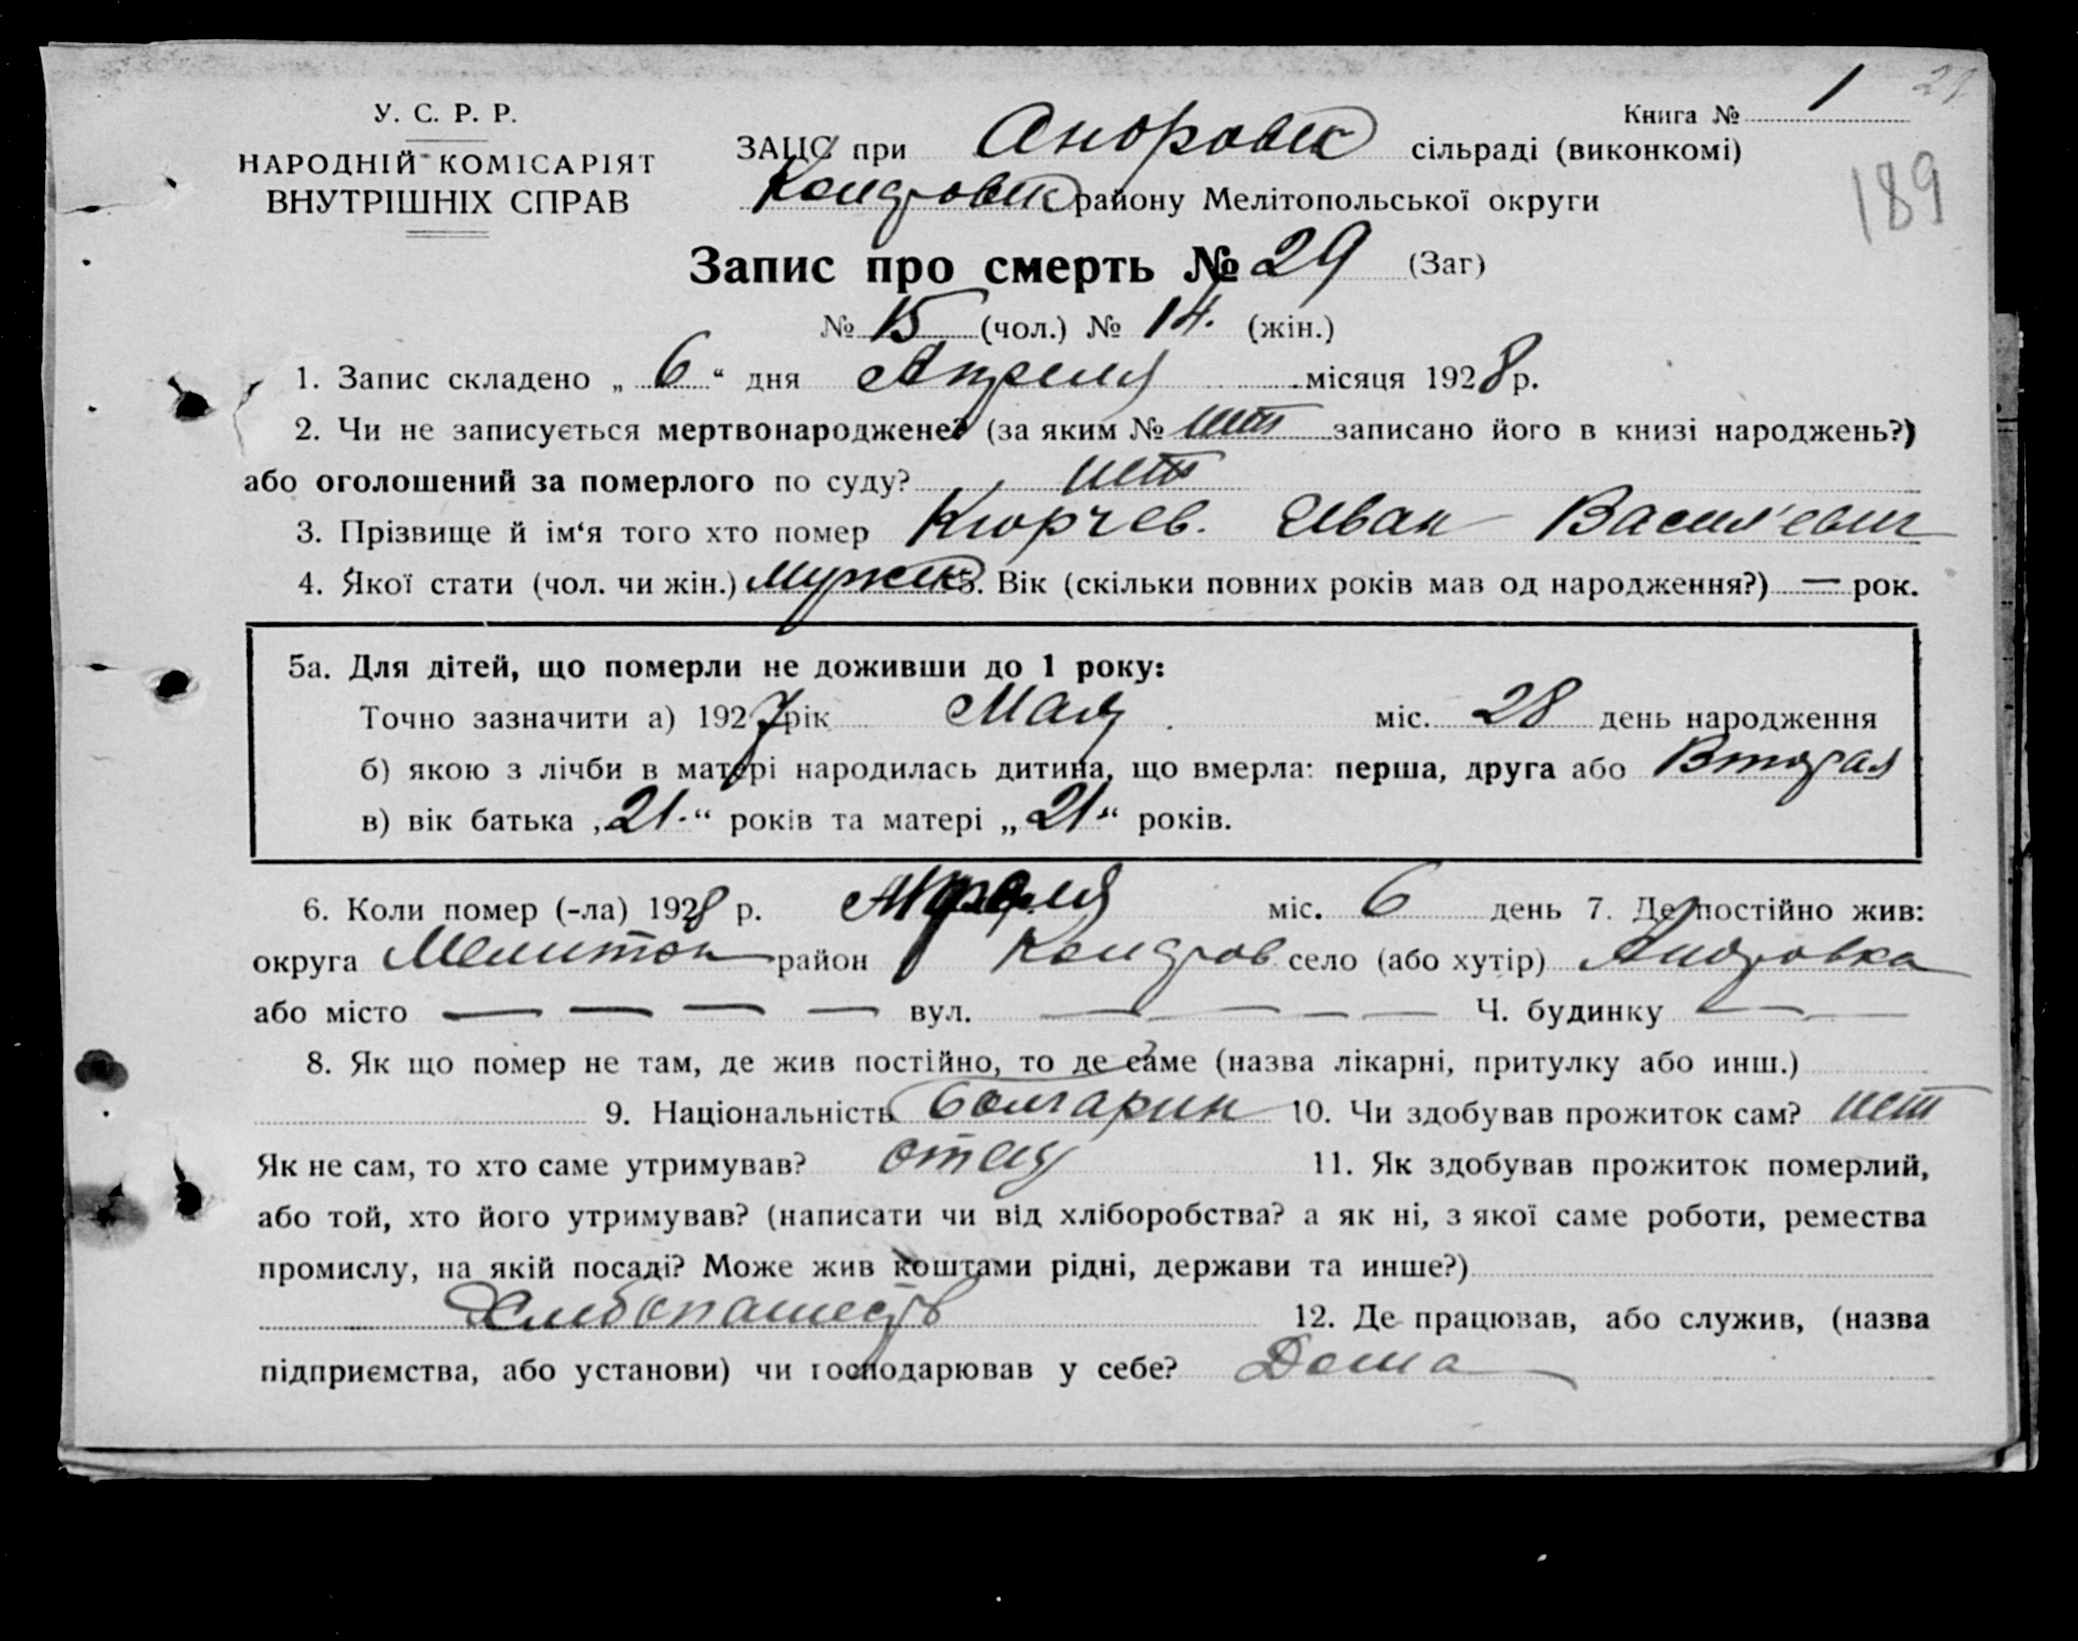 Книга № 1
У. С. Р. Р.
НАРОДНІЙ КОМІСАРІЯТ
ВНУТРІШНІХ СПРАВ
189
ЗАЦС при Андровск сільраді (виконкомі)
району Мелітопольської округи
Запис про смерть № 29 (Заг)
№ 15 (чол.) № 14. (жін.)
1. Запис складено „ 6 “ дня Апреля місяця 1928 р.
2. Чи не записується мертвонароджене? (за яким № нет записано його в книзі народжень?)
або оголошений за померлого по суду? нет
3. Прізвище й ім‘я того хто помер Кюрчев. Иван Васил'евич
4. Якої стати (чол. чи жін.) Мужск 5. Вік (скільки повних років мав од народження?) — рок.
5а. Для дітей, що померли не доживши до 1 року:
Точно зазначити а) 1927 рік Мая міс. 28 день народження
б) якою з лічби в матері народилась дитина, що вмерла: перша, друга або Вторая
в) вік батька „21.“ років та матері „21“ років.
6. Коли помер (-ла) 1928 р. Апреля міс. 6 день 7. Де постійно жив:
округа Мелитоп район село (або хутір) Андровка
або місто — — — — вул. — — — — Ч. будинку — —
8. Як що помер не там, де жив постійно, то де саме (назва лікарні, притулку або инш.)
9. Національність болгарин 10. Чи здобував прожиток сам? нет
Як не сам, то хто саме утримував? отец 11. Як здобував прожиток померлий,
або той, хто його утримував? (написати чи від хліборобства? а як ні, з якої саме роботи, ремества
промислу, на якій посаді? Може жив коштами рідні, держави та инше?)
12. Де працював, або служив, (назва
підприємства, або установи) чи господарював у себе? Дома